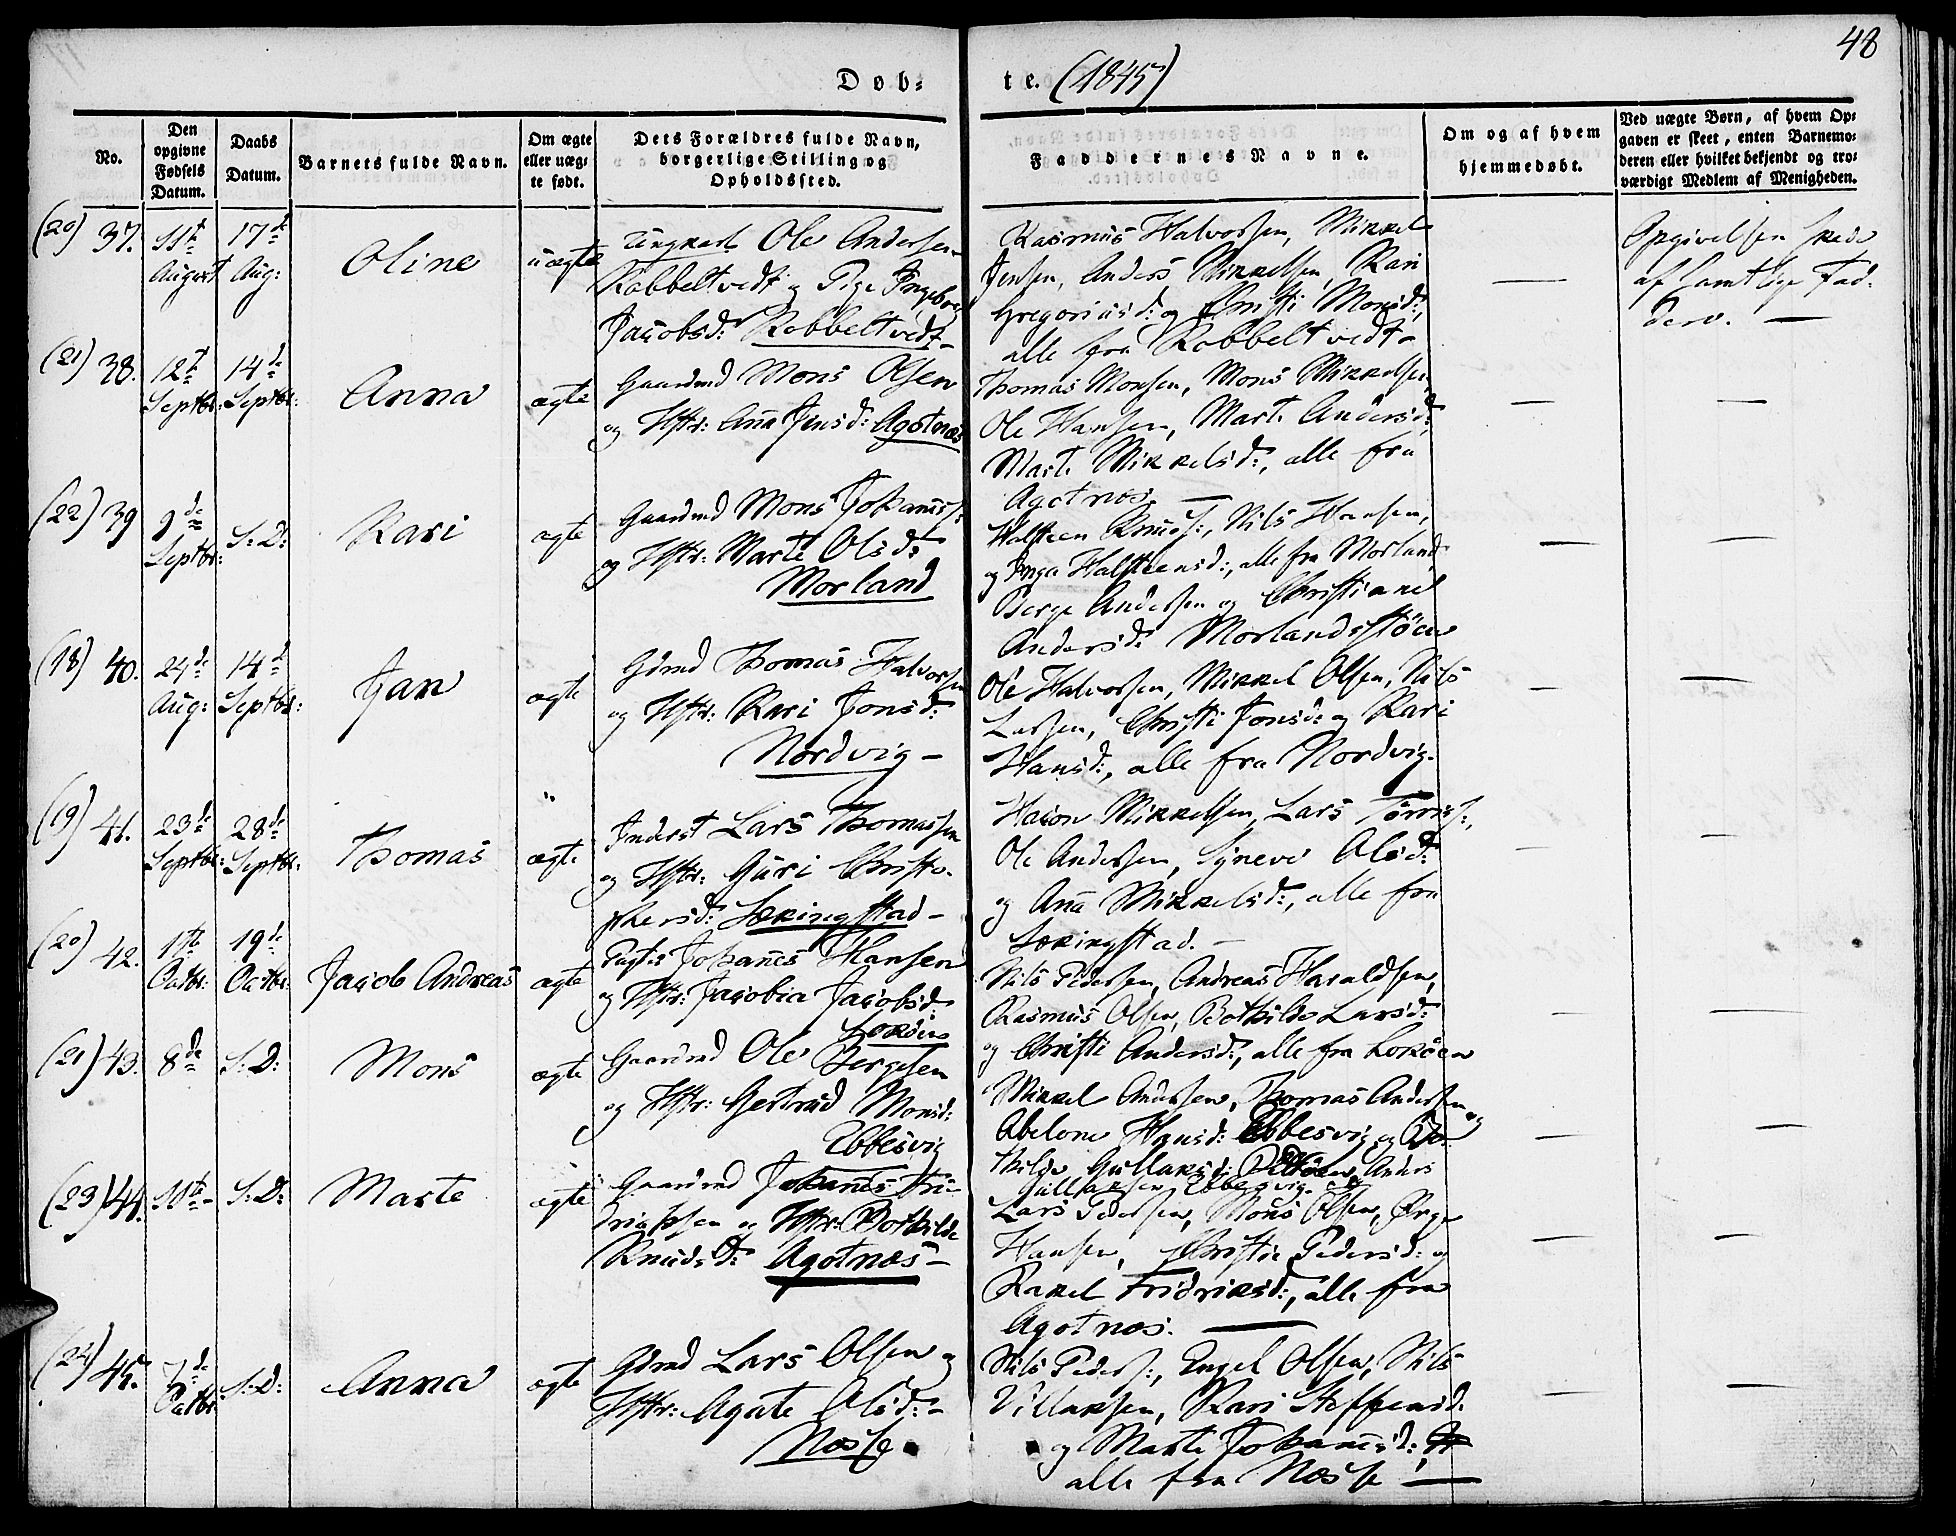 48
Døb=
te. (1845)
No.
Den opgivne Fødsels Datum.
Daabs Datum.
Barnets fulde Navn.
Om ægte eller uæg= te født.
Dets Forældres fulde Navn, borgerlige Stilling og Opholdssted.
Faddernes Navne.
Om og af hvem hjemmedøbt.
Ved uægte Børn, af hvem Op= gaven er skeet, enten Barnemo= deren eller hvilket bekjendt og tro= værdigt Medlem af Menigheden.
(20) 37.
11te August
17de Aug:
Oline
uægte
Ungkarl Ole Andersen
Kobbeltvedt og Pige Ingeborg
Jacobsd: Kobbeltvedt –
Rasmus Halvorsen, Mikkel
Jensen, Anders Mikkelsen, Kari
Gregoriusd: og Christi Monsd:,
alle fra Kobbeltvedt –
—
Opgivelsen skede
af samtlige Fad-
dere. —
(21) 38.
12te Septbr:
14de Septbr:
Anna
ægte
Gaardmd Mons Olsen
og Hstr: Aña Jensd: Agotnæs
Thomas Monsen, Mons Mikkelsen,
Ole Hansen, Marte Andersd:,
Marte Mikkelsd:, alle fra
Agotnæs. —
—
—
(22) 39
9de Septbr:
S: D:
Kari
ægte
Gaardmd Mons Johañess:
og Hstr: Marte Olsd:
Morland
Halsteen Knuds:, Nils Hansen,
og Inga Halsteensd:, alle fra Morland,
Berge Andersen og Christiane
Andersd: Morlandsstöen
—
—
(18) 40.
24de Aug:
14de Septbr:
Jan
ægte
Gdmd Thomas Halvorsen
og Hstr: Kari Jonsd:
Nordvig –
Ole Halvorsen, Mikkel Olsen, Nils
Larsen, Christi Jonsd: og Kari
Hansd:, alle fra Nordvig.
—
—
(19) 41.
23de Septbr:
28de Septbr:
Thomas
ægte
Inderst Lars Thomassen
og Hstr: Guri Christo-
phersd: Sekingstad –
Hacon Mikkelsen, Lars Törriss:,
Ole Andersen, Syneve Olsd:
og Aña Mikkelsd:, alle fra
Sekingstad. –
—
—
(20) 42.
1te Octbr:
19de Octbr:
Jacob Andreas
ægte
Johañes Hansen
og Hstr: Jacobia Jacobsd:
Loköen
Nils Pedersen, Andreas Haraldsen,
Rasmus Olsen, Bothilde Larsd:
og Christi Andersd:, alle fra Loköen
—
—
(21) 43.
8de
S: D:
Mons
ægte
Gaardmd Ole Bergesen
og Hstr: Gertrud Monsd:
Ebbesvig
Mikkel Andersen, Thomas Andersen og
Abelone Hansd: Ebbesvig og Bo-
thilde Gullaksd: Anders
Gullaksen Ebbesvig.
—
—
(23) 44.
10de –
S: D:
Marte
ægte
Gaardmd Johañes Fri-
drichsen og Hstr: Bothilde
Knudsd: Agotnæs –
Lars Pedersen, Mons Olsen, Örge
Hansen, Christie Pedersd: og
Rakel Fridriksd:, alle fra
Agotnæs. —
—
—
(24) 45.
7de Octbr:
S: D:
Anna
ægte
Gdmd Lars Olsen og
Hstr: Agate Olsd: –
Næsse
Nils Peders:, Engel Olsen, Nils
Villaksen, Kari Steffensd:
og Marte Johañesd:,
alle fra Næsse —
—
—